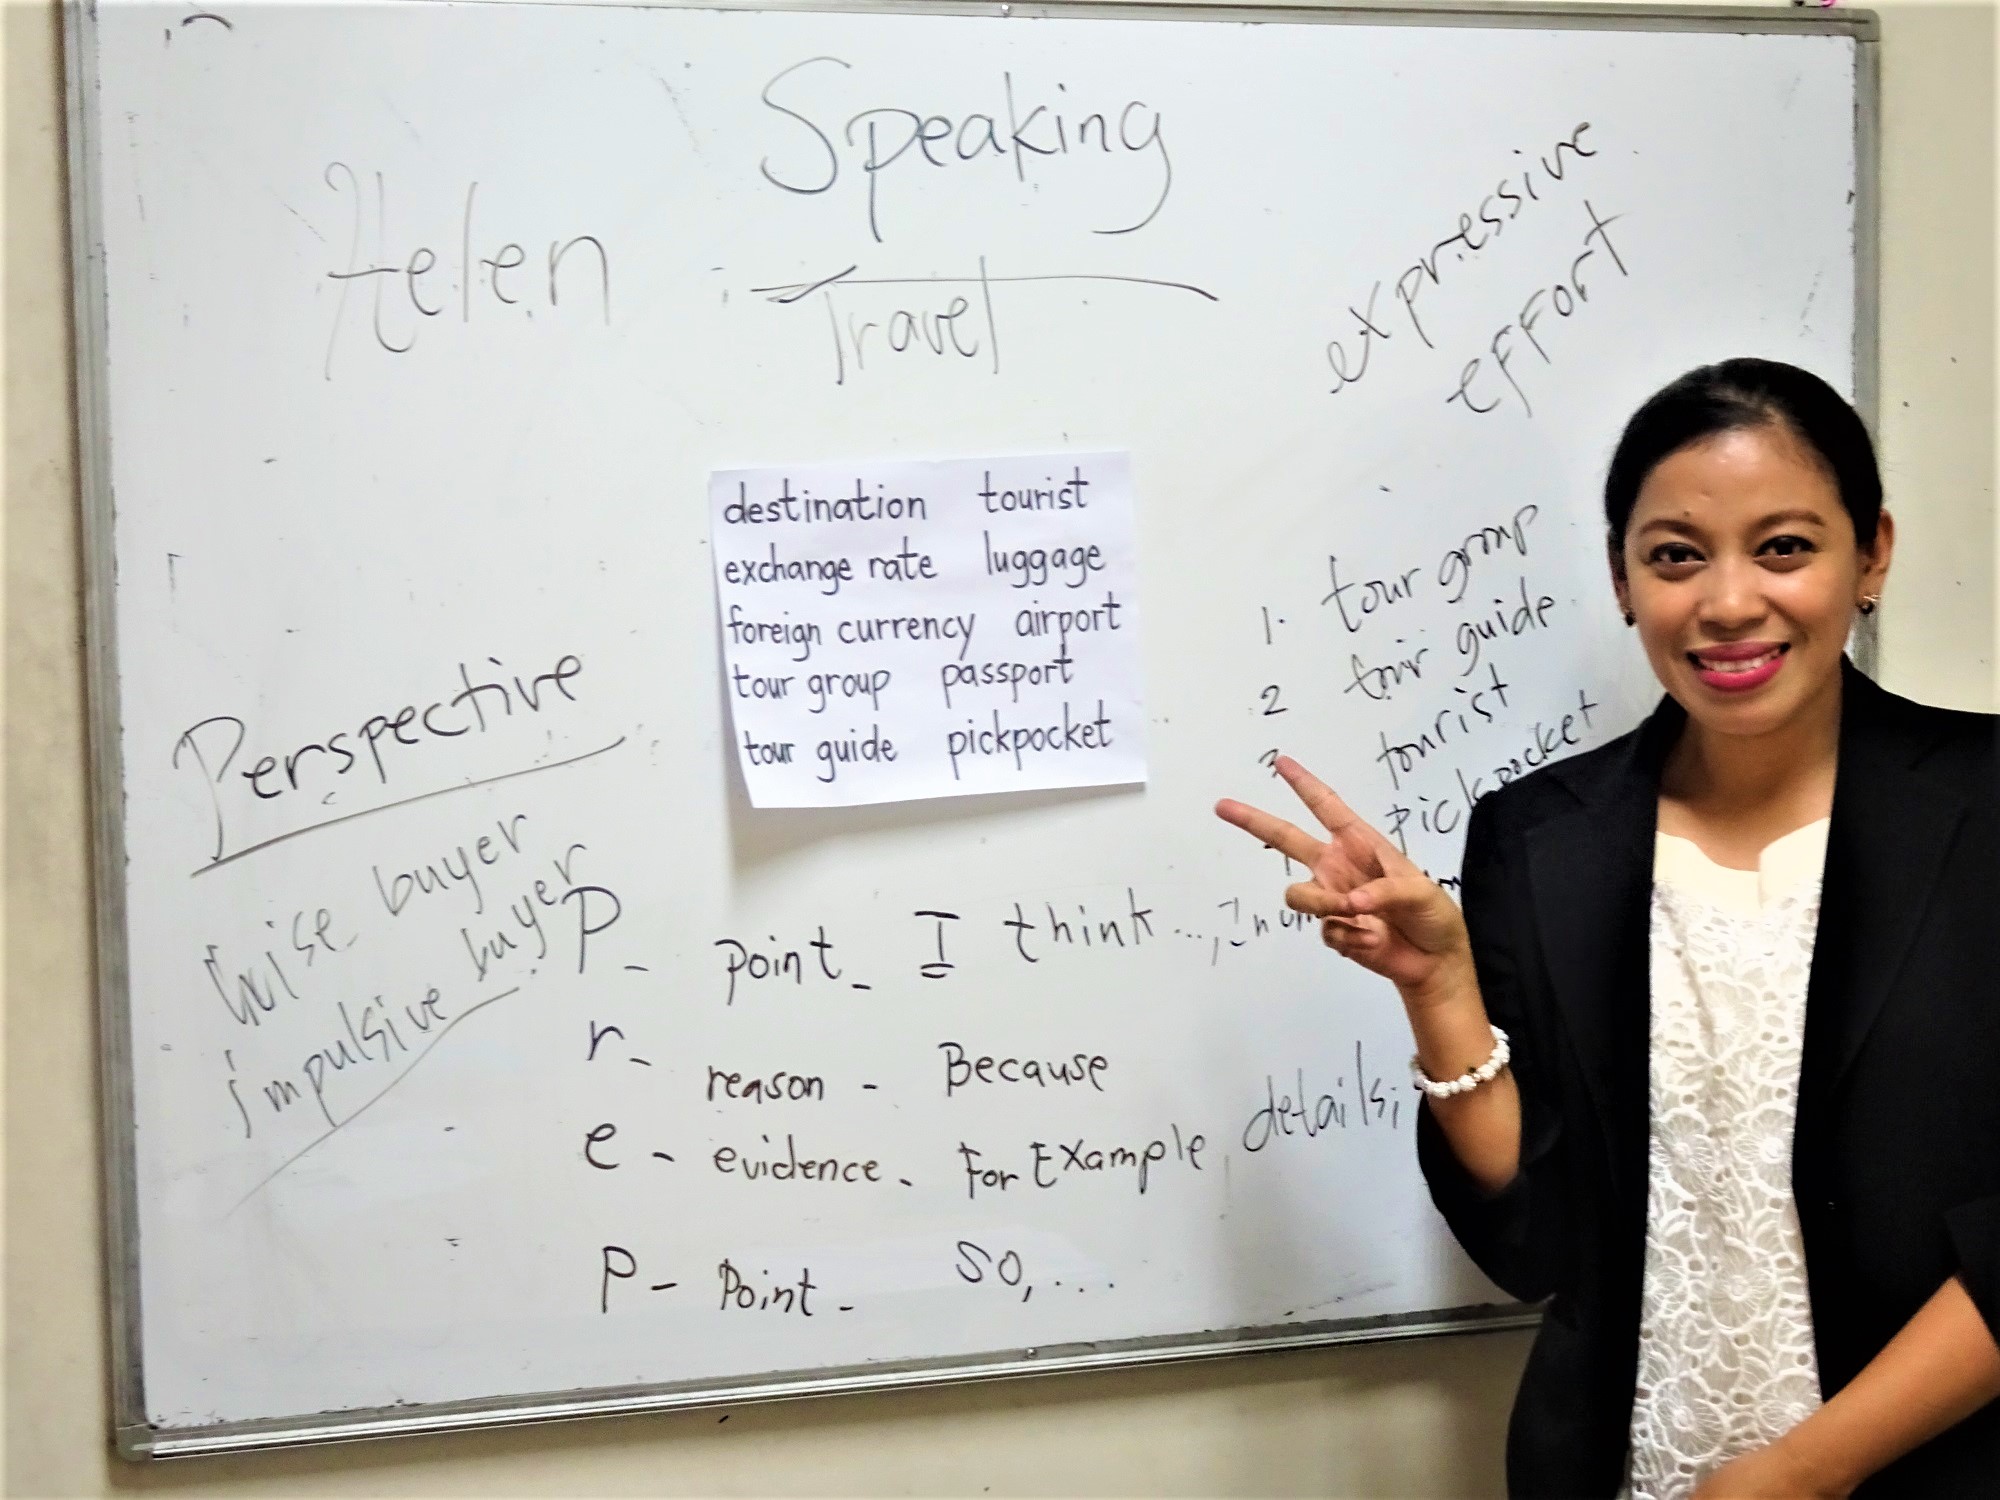 Speaking
Helen
Travel
expressive
effort
destination tourist
exchange rate luggage
foreign currency airport
tour group passport
tour guide pickpocket
1. tour group
2 tour guide
3 tourist
pickpocket
Perspective
Wise buyer
impulsive buyer
P - Point - I think...,
r - reason - Because
e - evidence - For Example, details;
P - Point - So, ...